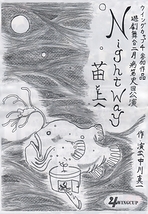 ウイングカップ4 参加作品
遊劇舞台二月病
回公演
Night way
作・演出 中川真一
WINGCUP